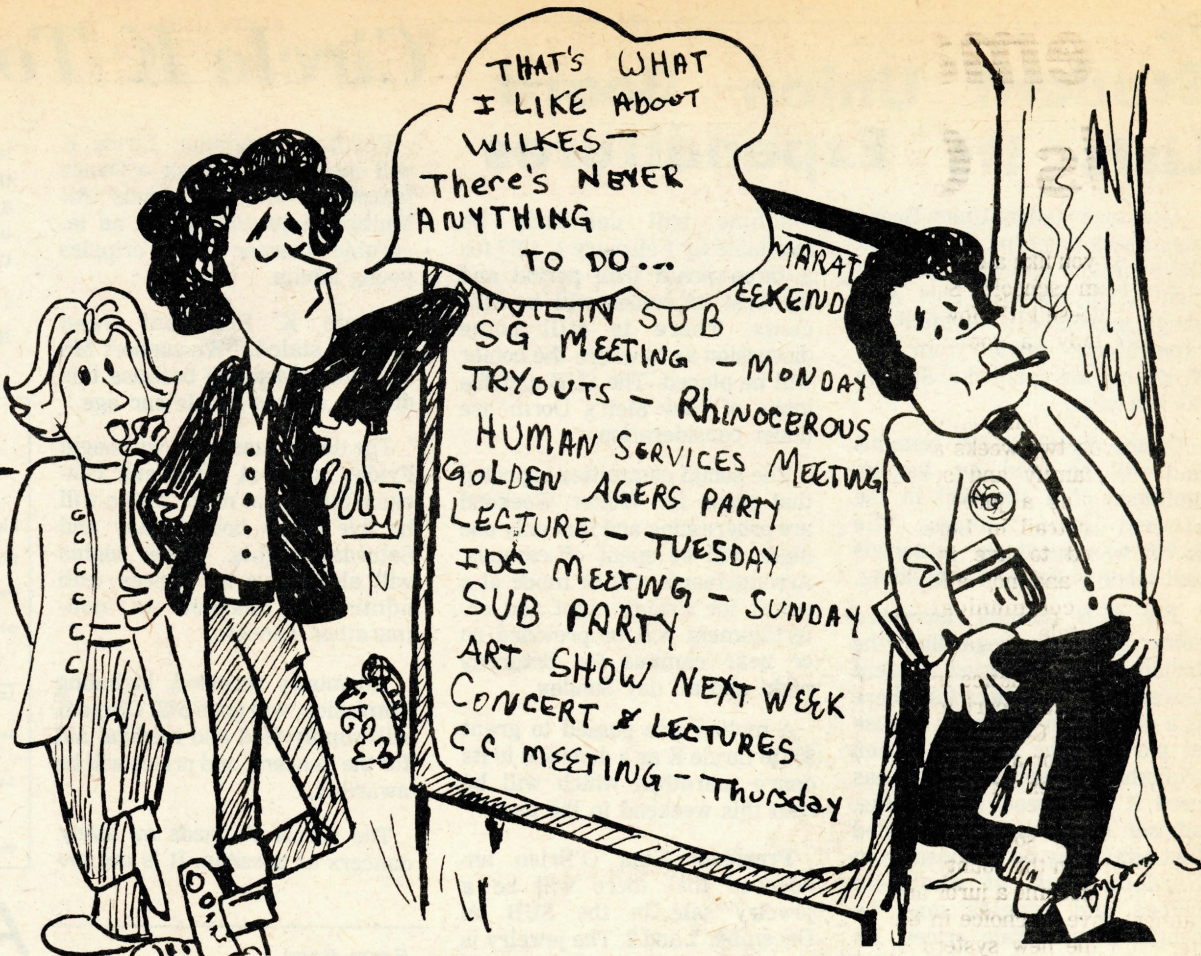 THAT'S WHAT
I LIKE ABOUT
WILKES—
There's NEVER
ANYTHING
TO DO...
MARAT
EEKEND
IN SUB
SG MEETING - MONDAY
TRYOUTS - RhINOCEROUS
HUMAN SERVICES MEETING
GOLDEN AGERS PARTY
LECTURE - TUESDAY
IDC MEETING - SUNDAY
SUB PARTY
ART SHOW NEXT WEEK
CONCERT & LECTURES
C C MEETING - Thursday